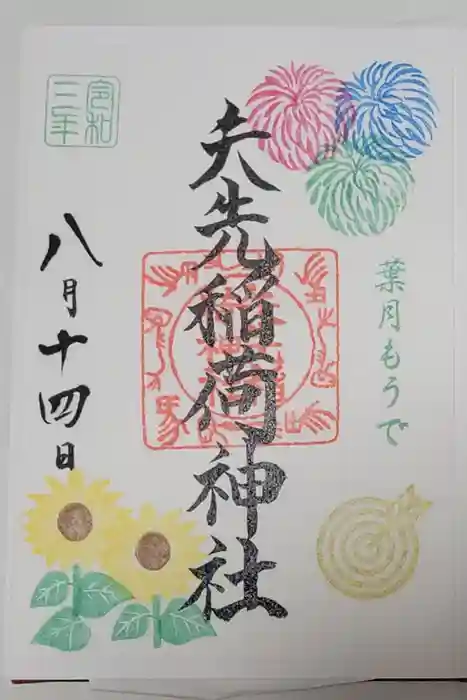 葉月もうで
矢先稲荷神社
令和
三年
八月十四日